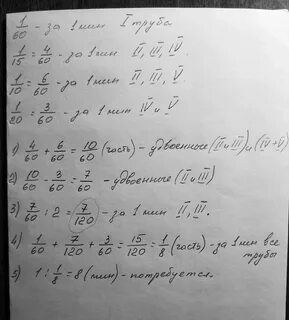 1/60 - за 1 мин I труба
1/15 = 4/60 - за 1 мин II, III, IV
1/10 = 6/60 - за 1 мин II, III, V
1/20 = 3/60 - за 1 мин IV и V
1) 4/60 + 6/60 = 10/60 (часть) - удвоенные (II и III) и (IV+V)
2) 10/60 - 3/60 = 7/60 - удвоенные (II и III)
3) 7/60 : 2 = 7/120 - за 1 мин II, III.
4) 1/60 + 7/120 + 3/60 = 15/120 = 1/8 (часть) - за 1 мин все трубы
5) 1 : 1/8 = 8 (мин) - потребуется.